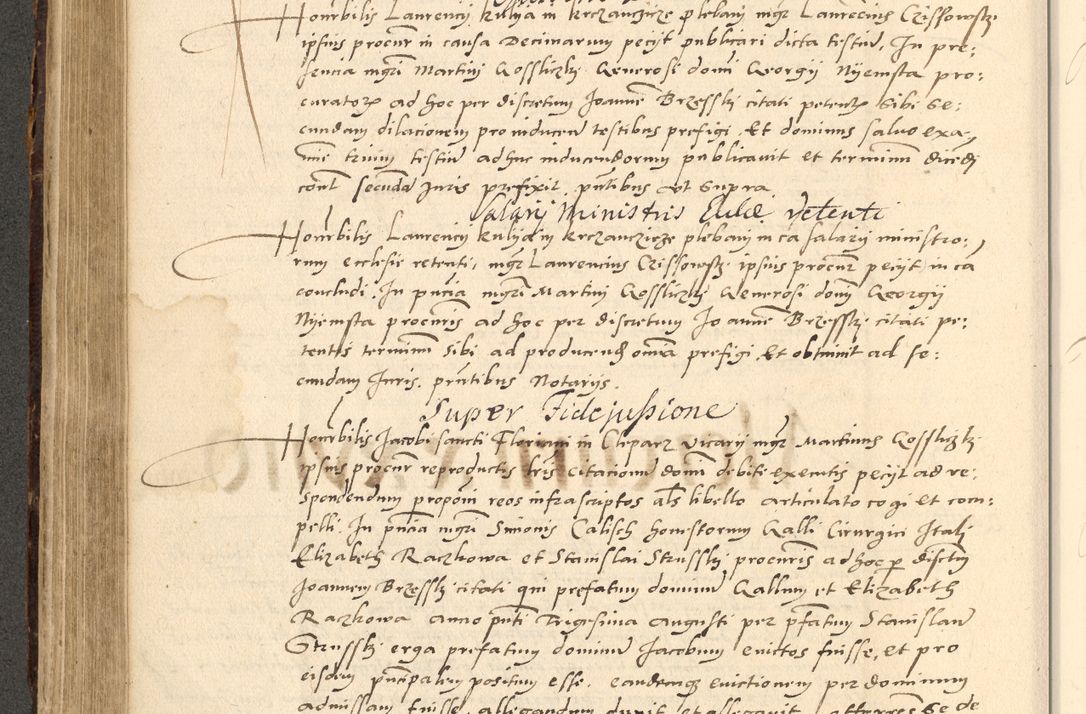 Honorbilis Laurencij Kulija in Krczanczicze plebani mgr Laurecius Czissowskj
ipsius procur in causa Decimarum pecijt publicari dicta testiu, In pre:
sencia mgri Martini Gosslickj Generosi domi Georgij Nijemsta pro:
curatorz ad hoc per discretum Joanne Brzesskj citati petentz sibi se:
cundam dilacionem pro inducen testibus prefigi, Et dominus salvo exa:
mie trium testiu ad huc inducendorum publicauit et terminum dicedj
cont secunda Juris prefixit, pntibus vt supra
Salarij Ministris Eccle retenti
Honorbilis Laurencij Kulijam Krczanczicze plebani in ca salarij ministro:
rum ecclesie retenti, mgr Laurencius Czissowskj ipsius procur pecijt in ca
concludi, In pncia mgri Martini Gosslickj Generosi domj Georgij
Nijemsta procuris ad hoc per discretum Joanne Brzesskj citati pe:
tentis terminum sibi ad producend omia prefigi, Et obtinuit ad se:
cundam Juris, pntibus Notarijs.
Super Fideiussione
Honorbilis Jacobi sancti Floriani in Cleparz vicarij mgr Martinus Gosslickj
ipsius procur reproductis lris citacionu domi debite executis pecijt ad re:
spondendum proponi reos infrascriptos als libello articulato cogi et com:
pelli In pncia mgri Simonis Calisch honestorum Galli Cirurgici Itali
Elizabeth Raczkowa et Stanislai Strusskj procuris ad hoc p disctu
Joannem Brzesskj citati qui prefatum dominum Gallum et Elizabeth
Raczkowa anno pnti Trigesima augusti per pfatum Stanislau
Strusskj erga prefatum dominu Jacobum euictos fuisse, et pro
eisdem pncipalem positum esse, eandemq euictionem per dominum
admissam fuisse, allegandum duxit et allegauit, se de